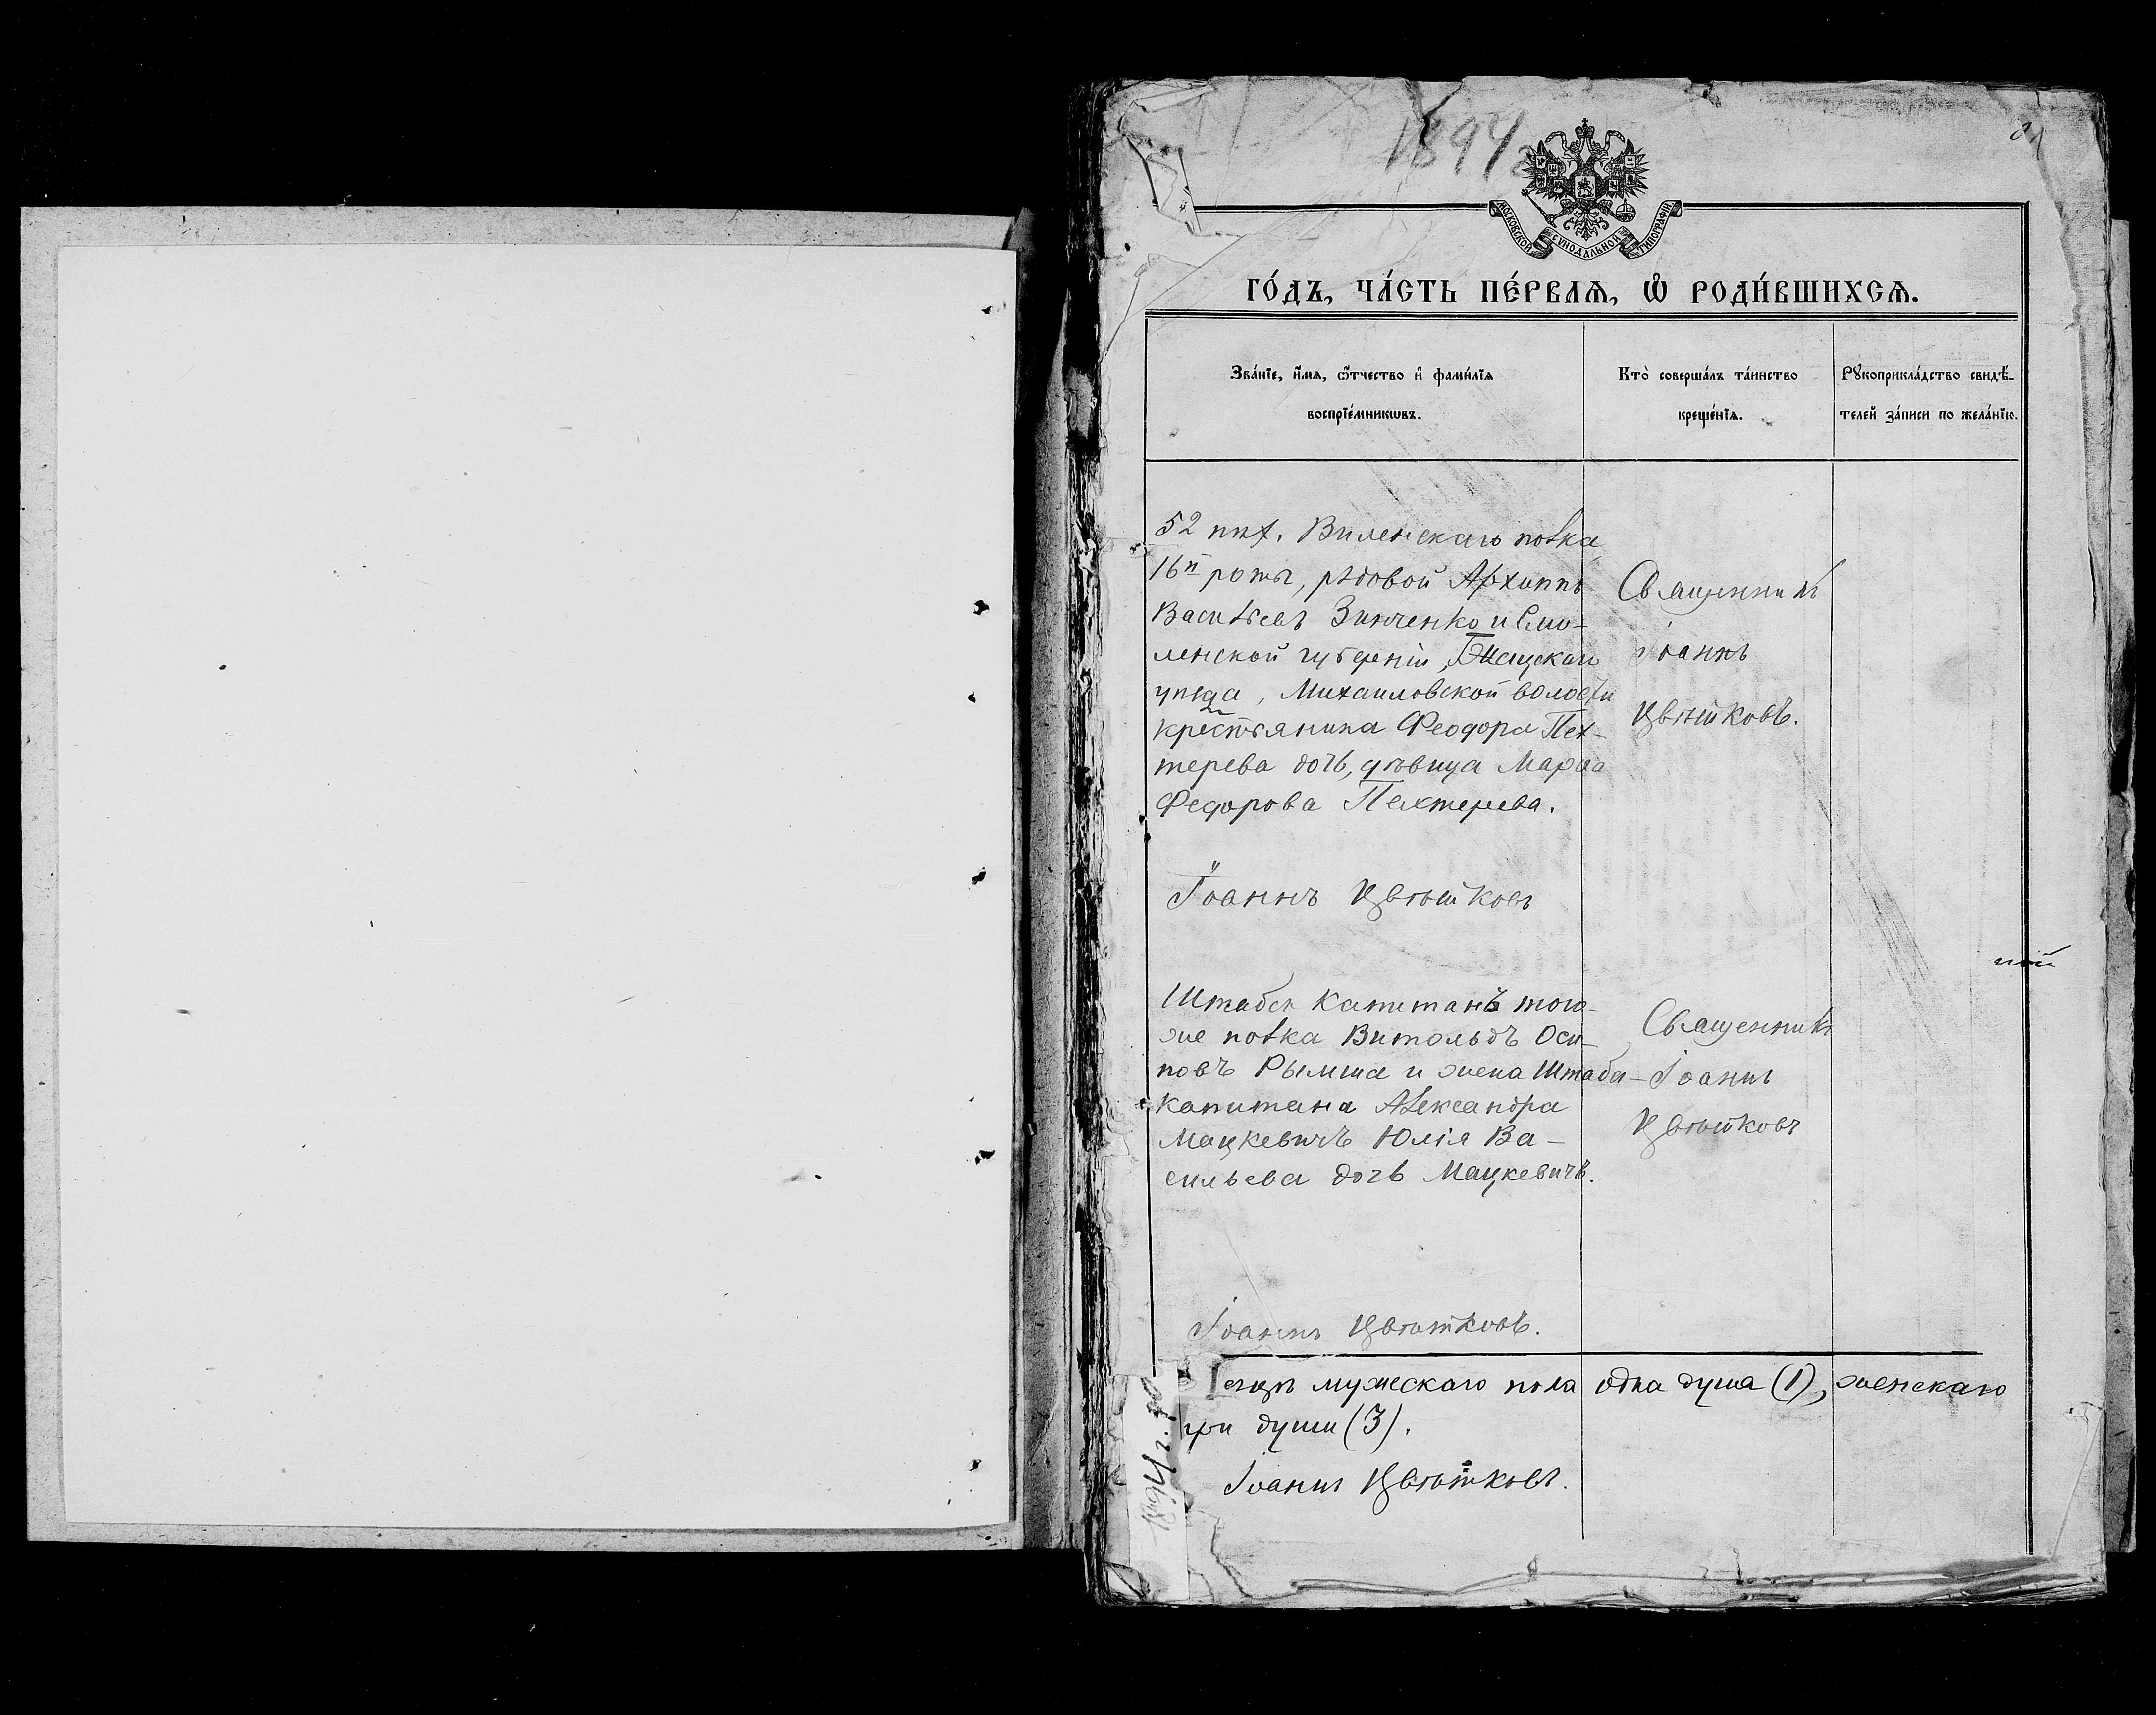 1894
МОСКОВСКОЙ СѴНОДАЛЬНОЙ ТИПОГРАФІИ
ГО́ДЪ, ЧА́СТЬ ПЕ́РВАѦ, Ѽ РОДИ́ВШИХСѦ.
Зва́нїе, и҆́мѧ, ѻ҆́тчество и҆ фами́лїѧ
воспрїе́мникѡвъ.
Кто̀ соверша́лъ та́инство
креще́нїѧ.
Рꙋкоприкла́дство свидѣ́-
телей за́писи по жела́нїю.
52 пѣх. Виленскаго полка
16й роты, рядовой Архиппъ
Васильевъ Зинченко и Смо-
ленской губерніи,
уѣзда, Михаиловской волости
крестьянина Феодора Пех-
терева дочь, дѣвица Марѳа
Федорова Пехтерева.
Священникъ
Іоаннъ
Цвѣтковъ.
Іоаннъ Цвѣтковъ
Штабсъ Капитанъ того-
же полка Витольдъ Оси-
повъ Рымша и жена Штабсъ-
Капитана Александра
Мацкевичъ Юлія Ва-
сильева дочь Мацкевичъ.
Священникъ
Іоаннъ
Цвѣтковъ
Іоаннъ Цвѣтковъ.
мужескаго пола одна душа (1), женскаго
три души (3).
Іоаннъ Цвѣтковъ.
1894 г.